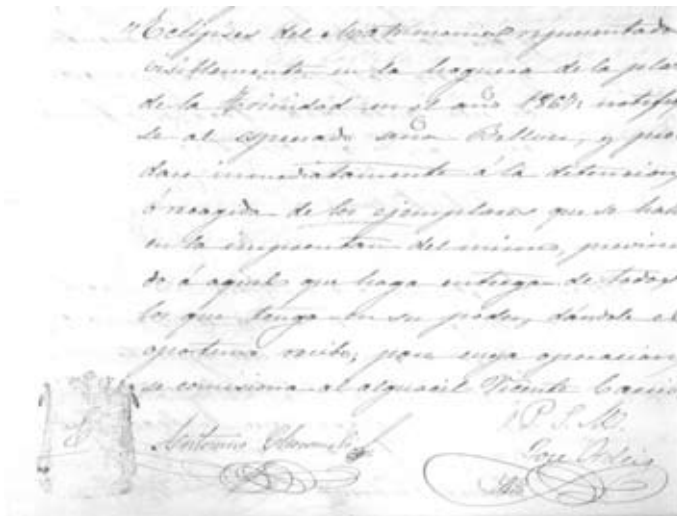 "Eclipses del Matrimonio representado
visiblemente en la hoguera de la plaz
de la Trinidad en el año 186 notifi
se al espresado señor Bellver, y pro
dase inmediatamente á la detencion
ó recogida de los ejemplares que se hall
en la imprenta del mismo, previnien
do á aquel que haga entrega de todos
los que tenga en su poder, dándole el
oportuno recibo; para cuya operacion
se comisiona al alguacil Vicente
P. S. M.
Antonio
Jose